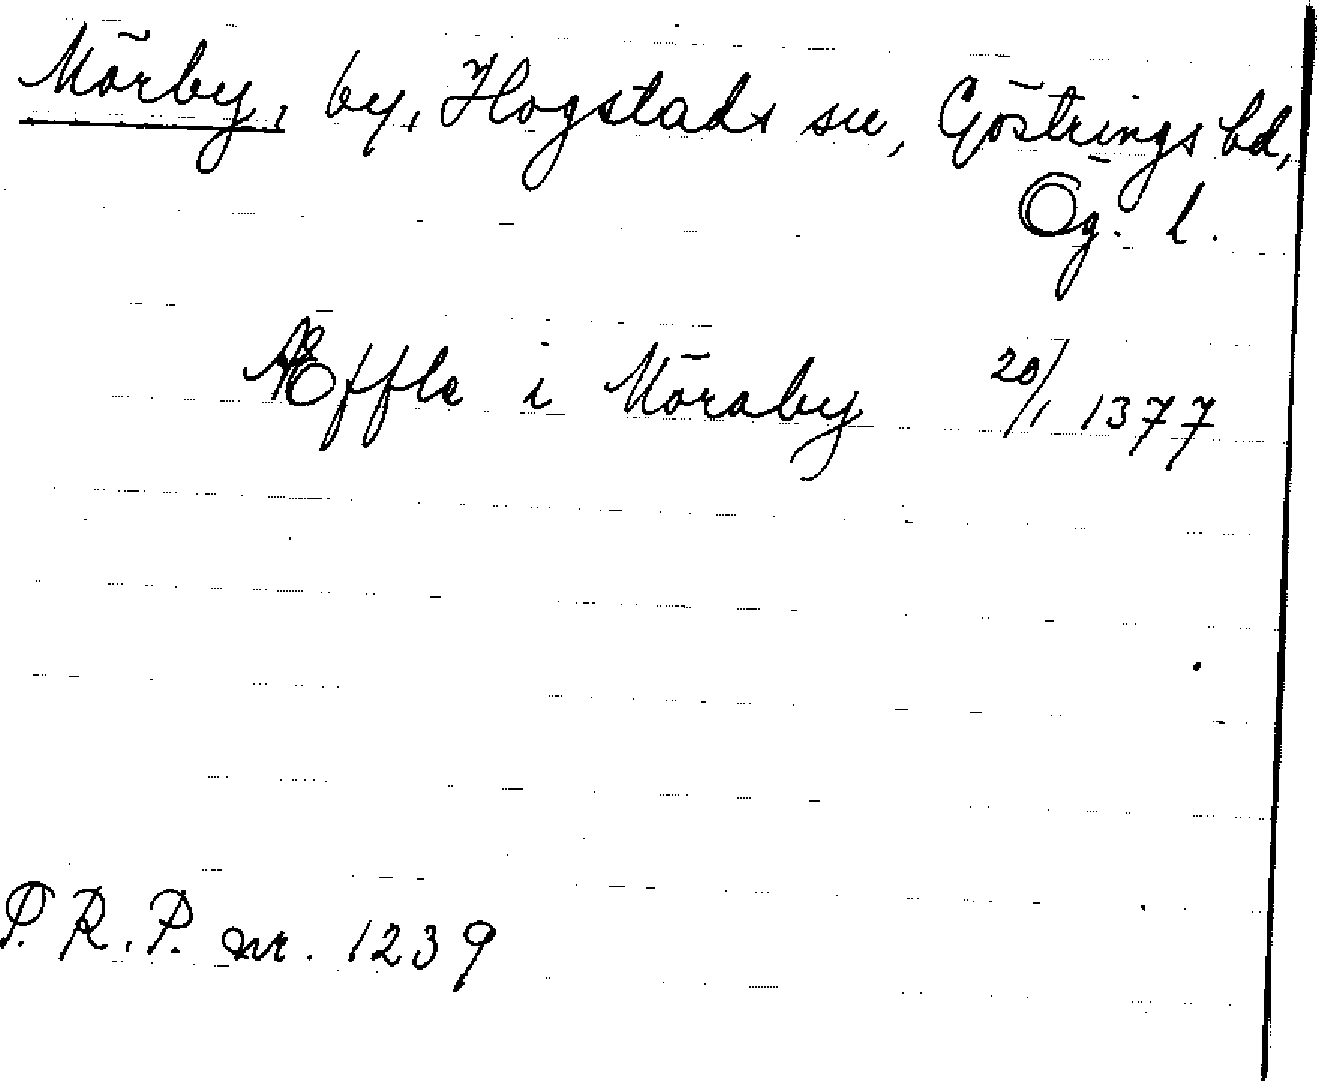 Mörby, by, Hogstads sn, Göstrings hd,
Ög. l.
Æffla i Möraby 20/1 1377
P.R.P. nr. 1239